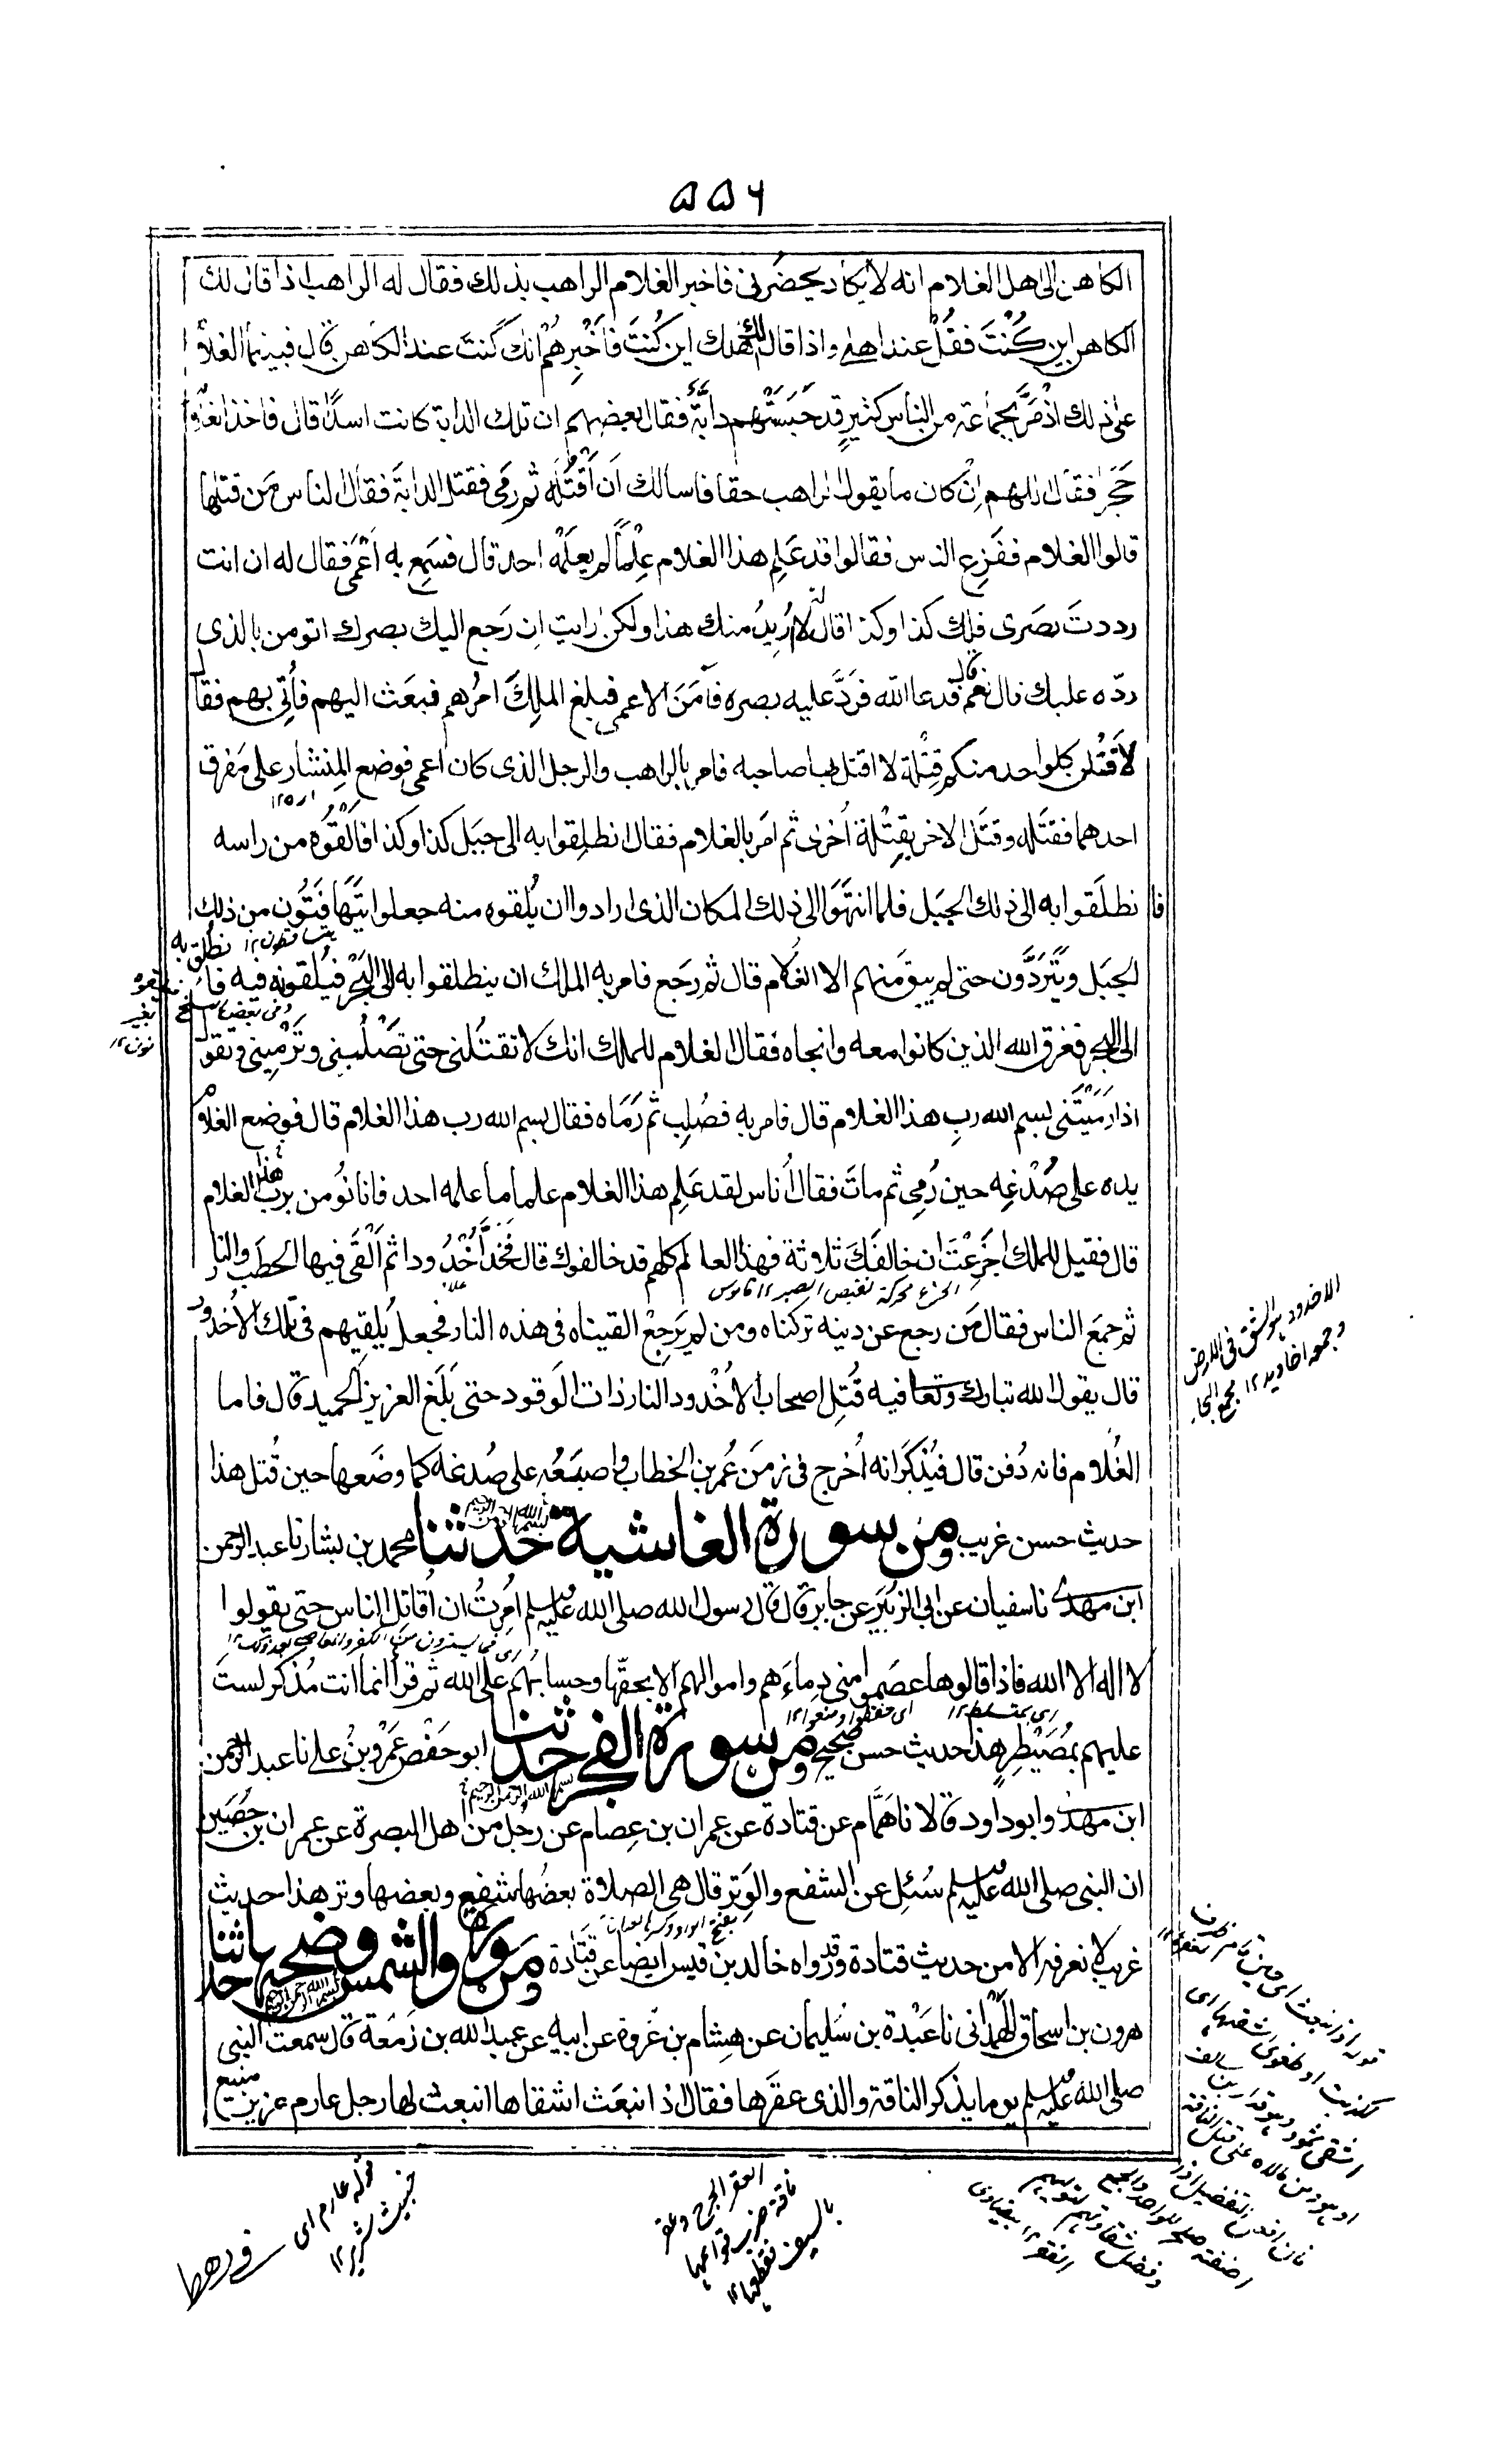 ۵۵۶
الكاهن الى اهل الغلام انه لا يكاد يحضرنى فاخبر الغلام الراهب بذلك فقال له الراهب اذا قال لك
الكاهن اين كُنْتَ فقُلْ عند اهلى واذا قال لك اهلك اين كُنتَ فاَخْبِرهُمْ انك كنت عند الكاهن قال فبينما الغلام
على ذلك اذ مَرَّ بجماعة من الناس كثيرٍ قد حَبَسَتْهم دابَّةٌ فقال بعضهم ان تلك الدابة كانت اسدًا قال فاخذ الغلام
حَجَرًا فقال اللهم اِنْ كان ما يقول الراهب حقا فاسالك اَن اَقْتُلَه ثم رمى فقتل الدابةَ فقال الناس مَن قتلها
قالوا الغلام ففَزِع الناس فقالوا قد عَلِم هذا الغلام عِلْمًا لم يعلَمْه احد قال فسَمِع به اَعْمى فقال له ان انت
رددتَ بصرى فلك كذا وكذا قال له لا اُرِيدُ منك هذا ولكن ارايت اِن رَجع اليك بصرك اتومن بالذى
ردّه عليك قال نعم قال فدعا الله فرَدَّ عليه بصره فآمَنَ الاعمى فبلغ الملِكَ امرُهم فبعَث اليهم فاُتِىَ بهم فقال
لاَقتُلن كل واحد منكم قِتْلة لا اقتل بها صاحبه فامر بالراهب والرجل الذى كان اعمى فوضع المِنشار على مَفرق
احدهما فقتَله وقتَل الاخر بقِتْلة اُخرى ثم امَر بالغلام فقال انطلِقوا به الى جبَل كذا وكذا فالْقُوْه من راسه
فانطلَقوا به الى ذلك الجبَل فلما انتهَوا الى ذلك المكان الذى ارادوا ان يُلقوه منه جعلوا يتهافَتُون من ذلك
الجبَل ويَتَرَدَّون حتى لم يبقَ منهم الا الغلام قال ثم رجَع فامر به الملك ان ينطلقوا به الى البحر فيُلقونه فيه فانطُلق به
الى البحر فغرق الله الذين كانوا معه وانجاه فقال الغلام للملك انك لا تقتُلنى حتى تَصْلُبنى وتَرْمِينى وتقول
اذا رمَيْتَنى بسم الله ربِ هذا الغلام قال فامر به فصُلِب ثم رَمَاه فقال بسم الله رب هذا الغلام قال فوضع الغلام
يده على صُدْغِه حين رُمِى ثم مات فقال اُناس لقد عَلِم هذا الغلام علما ما علمه احد فانا نُومن برب هذا الغلام
قال فقيل للملك اَجَزِعْتَ ان خالفَكَ ثلاثة فهذا العالم كلهم قد خالفوك قال فخَدَّ اُخْدُودا ثم اَلْقَى فيها الحَطَب والنار
الجزع محركة نقيض الصبر ١٢ قاموس
ثم جمَع الناس فقال مَن رجع عن دينه تركناه ومن لم يَرجِعْ القيناه فى هذه النار فجعل يُلقِيهم فى تلك الاُخدود
الاخدود هو الشق فى الارض
وجمعه اخاديد ١٢ مجمع البحار
قال يقول الله تبارك وتعا فيه قُتِل اصحاب الاُخْدود النار ذات الوَقود حتى بَلَغ العزيز الحميد قال فاما
الغُلام فانه دُفن قال فيُذكَر انه اُخرج فى زمَن عُمر بن الخطاب واصبَعُه على صُدغه كما وضَعها حين قُتل هذا
حديث حسن غريب ومن سورة الغاشية بسم الله الرحمن الرحيم حدثنا محمد بن بشار نا عبد الرحمن
ابن مهدى نا سفيان عن ابى الزُبَير عن جابر قال قال رسول الله صلى الله عليه وسلم اُمِرتُ ان اُقاتل الناس حتى يقولوا
لا اله الا الله فاذا قالوها عصَموا منى دِماءَهم واموالهم الا بحقّها وحسابُهم على الله ثم قرأ انما انت مُذكر لستَ
اى حفظوا ومنعوا ١٢
عليهم بمُصَيْطِرٍ هذا حديث حسن صحيح ومن سورة الفجر بسم الله الرحمن الرحيم حدثنا ابو حَفْص عَمْرو بنُ على نا عبد الرحمن
ابن مهدى وابو داود قالا نا هَمَّام عن قتادة عن عمران بن عِصام عن رجل من اهل البصرة عن عمران بن حُصَين
ان النبى صلى الله عليه وسلم سُئِل عن الشفع والوَتر قال هى الصلاة بعضُها شفع وبعضها وتر هذا حديث
غريب لا نعرفه الا من حديث قتادة وقد رواه خالد بن قيس ايضا عن قتَادة ومن سورة والشمس وضحها بسم الله الرحمن الرحيم حدثنا
هرون بن اسحاق الهَمْدانى نا عَبْدة بن سُليمان عن هِشام بن عُروة عن ابيه عن عبد الله بن زَمعَة قال سمعت النبى
صلى الله عليه وسلم يوما يذكر الناقة والذى عقَرها فقال اذ انبعَث اشقاها انبعث لها رجل عارم عزيز منيع
قوله عارم اى
خبيث شرير ١٢
العقر الجرح وعقر
ناقة ضرب قوائمها
بالسيف فقطعها ١٢
فى رهط